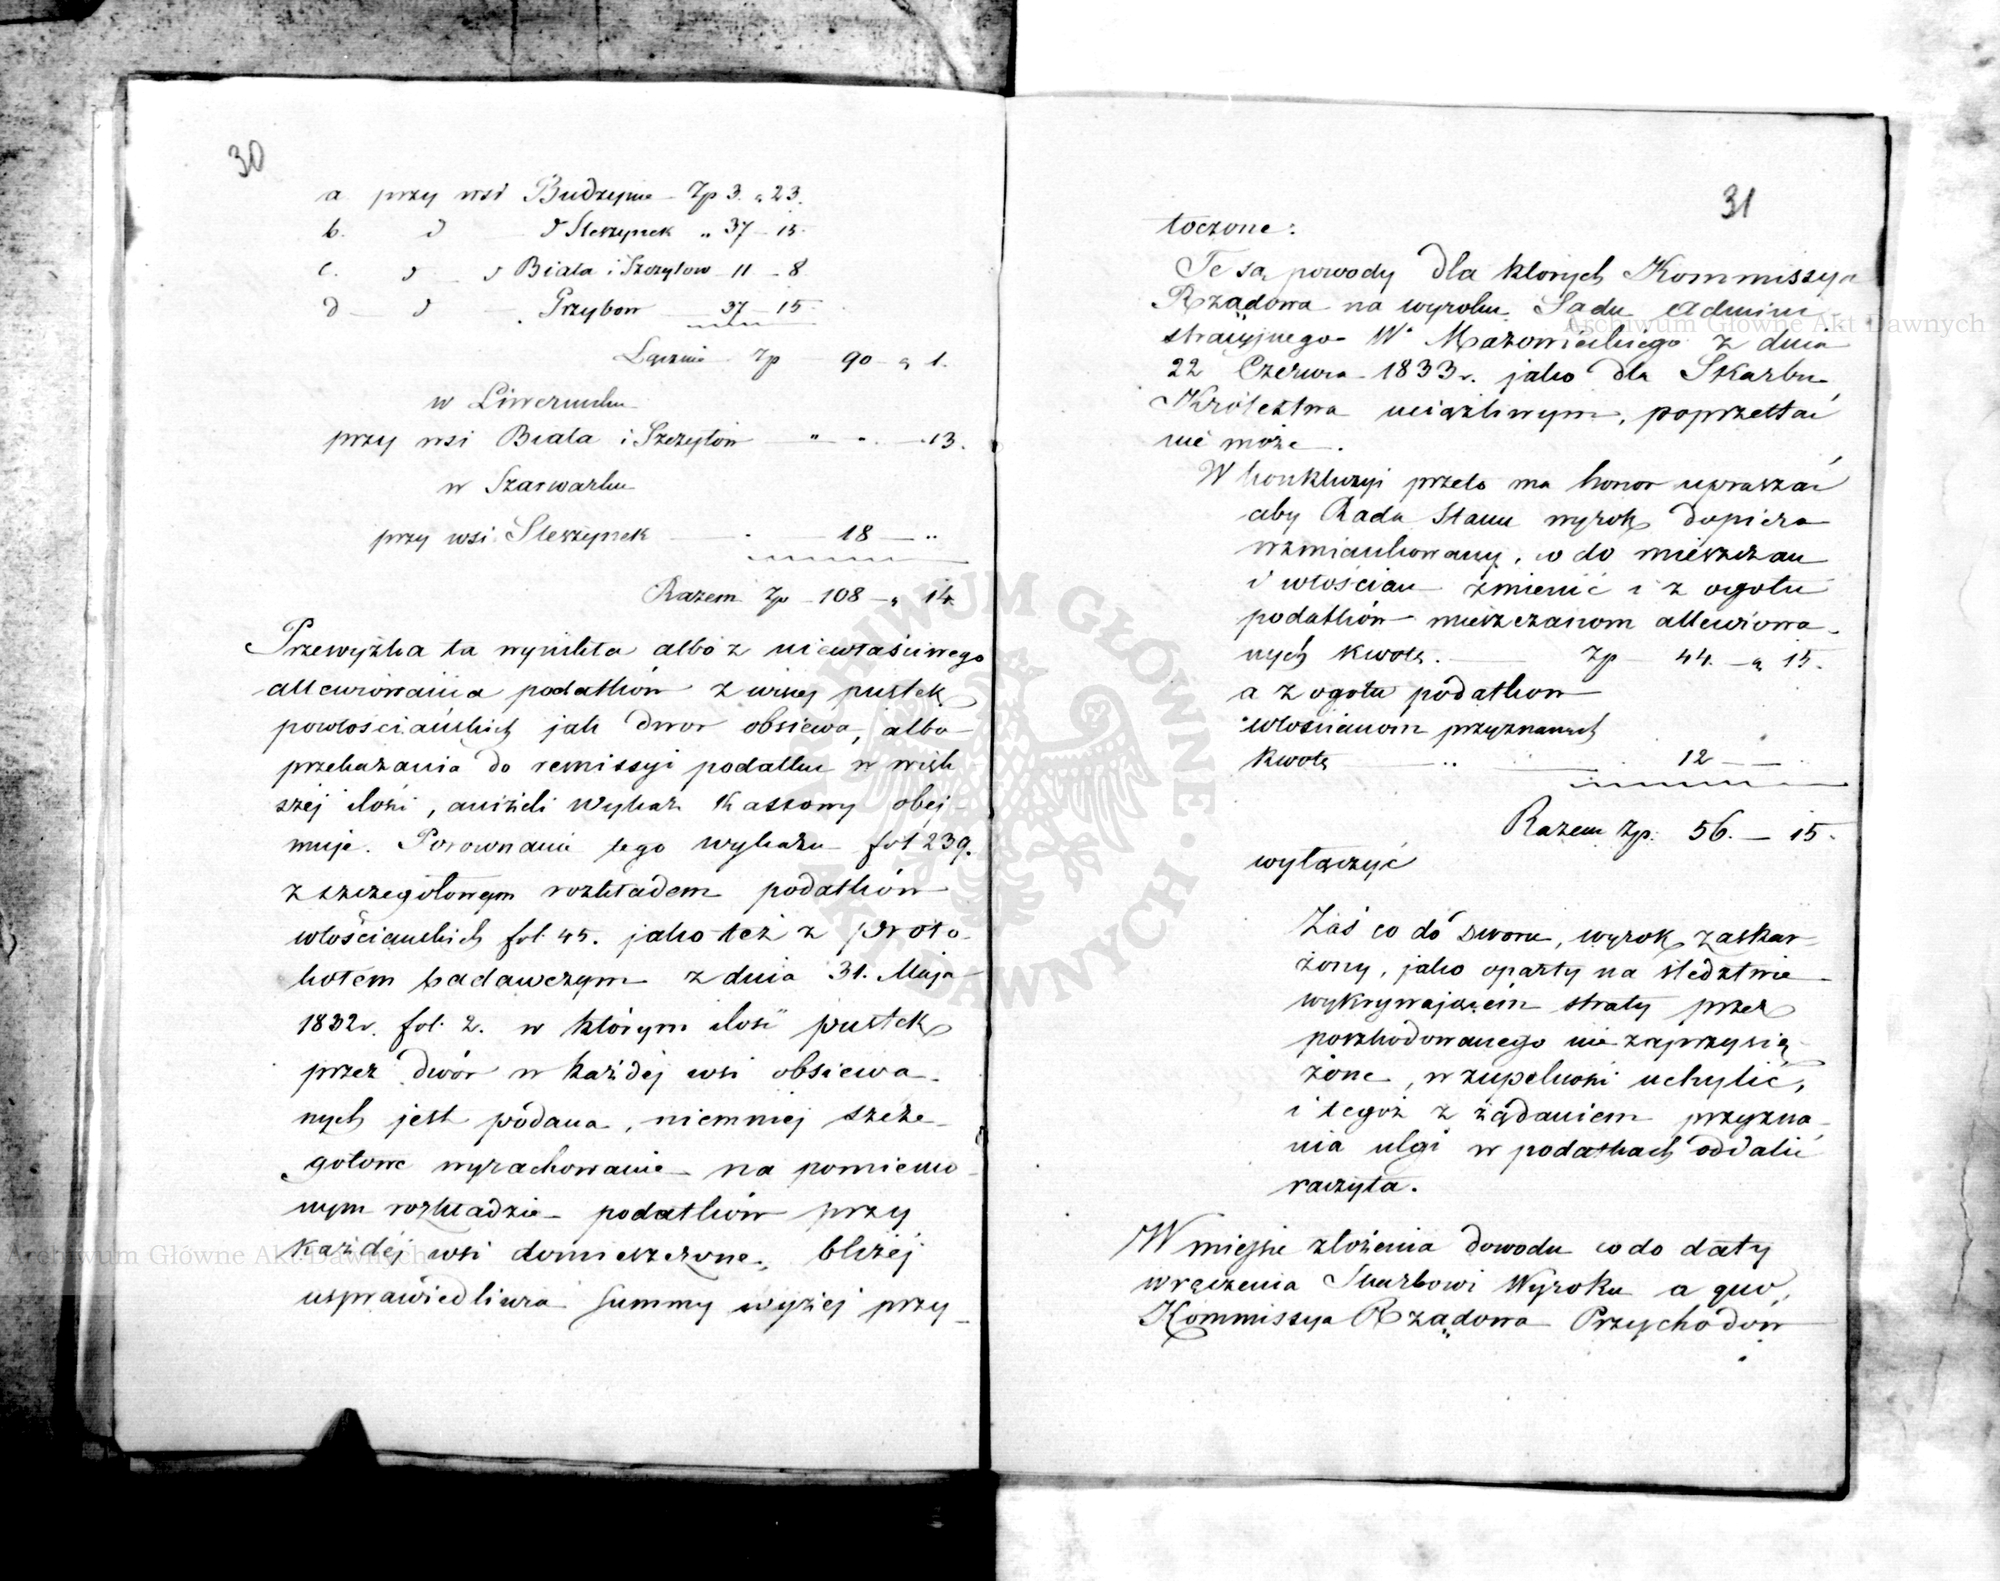 30
a przy wsi Budzynie Zp 3. „ 23.
b. d d Sterzynek „ 37 – 15.
c. d d Biała i Szczytow – 11 – 8
d d Grzybow 37 – 15.
Łącznie Zp 90 – „ 1.
w Liwerunku
przy wsi Biała i Szczytów – „ – „ – 13.
w Szarwarku
przy wsi Sterzynek 18 – „
Razem Zp – 108 – „ 14.
Przewyżka ta wynikła albo z niewłaściwego
allewiowania podatków z wiséj pustek
powłościańskich jak dwor obsiewa, albo
przekazania do remissyi podatku w więk
széj ilości, aniżeli Wykaz Kassowy obej-
muje. Porownanie tego wykazu fol 239.
z szczegółowym rozkładem podatków
włościańskich fol. 45. jako też z proto-
kołem badawczym z dnia 31. Maja
1832 r. fol. 2. w którym ilość pustek
przez dwór w każdéj wsi obsiewa-
nych jest podana, niemniéj szcze-
gołowe wyrachowanie na pomienio-
nym rozkładzie podatków przy
każdéj wsi domieszczone, bliżéj
usprawiedliwia summy wyżéj przy-
31
toczone:
Te są powody dla ktorych Kommissya
Rządowa na wyroku Sadu Admini-
stracyjnego Wa Mazowieckiego z dnia
22 Czerwca 1833 r. jako dla Skarbu
Królestwa uciążliwym, poprzestać
nie może.
W konkluzyi przeto ma honor upraszać
aby Rada Stanu wyrok dopiero
wzmiankowany, co do mieszczan
i włościan zmienić i z ogołu
podatków mieszczanom allewiowa-
nych kwotę. Zp 44. – „ 15.
a z ogołu podatkow
włościanom przyznanych
kwotę „ 12 –
Razem Zp: 56. – 15.
wyłączyć
Zaś co do dworu, wyrok zaskar-
żony, jako oparty na śledztwie
wykrywającém straty przez
poszkodowanego nie zaprzysię-
żone, w zupełności uchylić,
i tegoż z żądaniem przyzna-
nia ulgi w podatkach oddalić
raczyła.
W miejsce złożenia dowodu co do daty
wręczenia Skarbowi Wyroku a quo,
Kommissya Rządowa Przychodów
Archiwum Główne Akt Dawnych
Archiwum Główne Akt Dawnych
ARCHIWUM GŁÓWNE AKT DAWNYCH